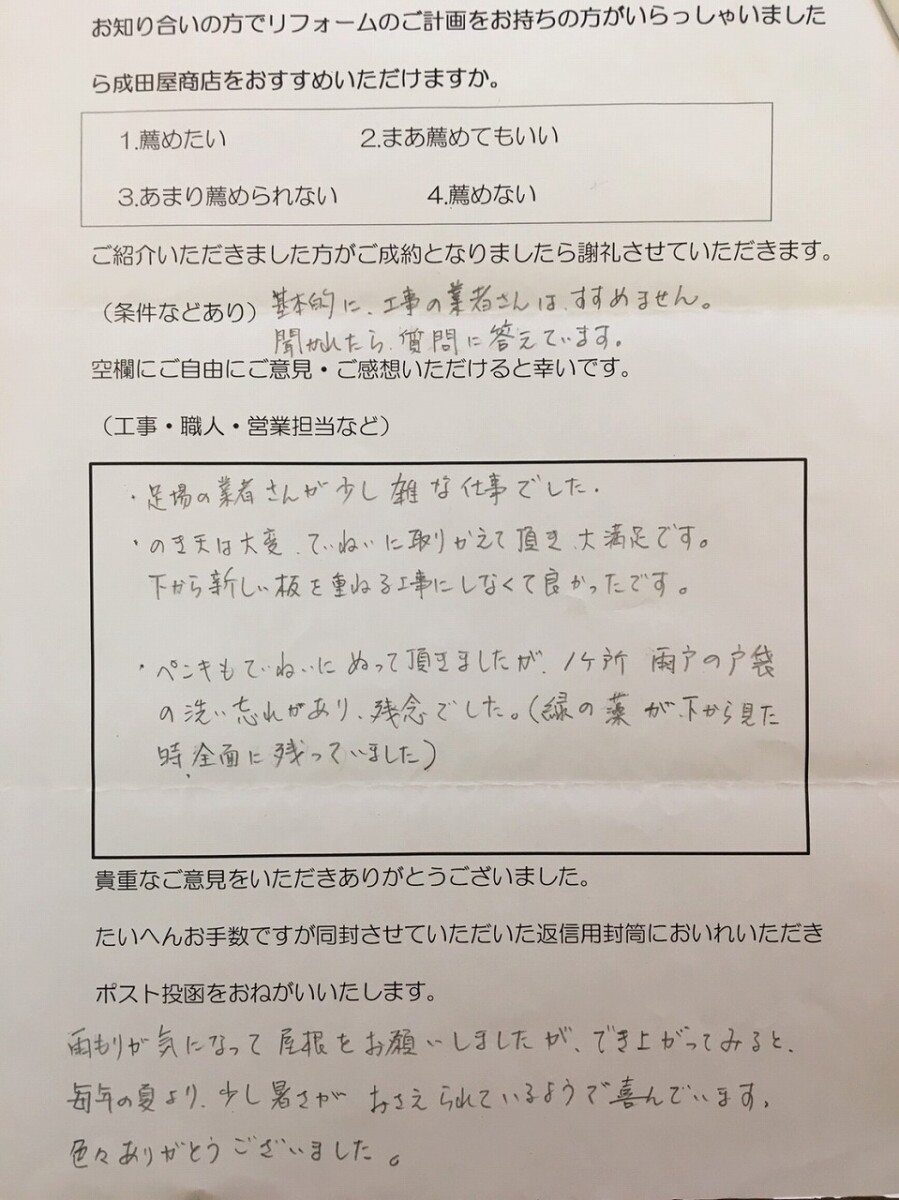 お知り合いの方でリフォームのご計画をお持ちの方がいらっしゃいました
ら成田屋商店をおすすめいただけますか。
1.薦めたい 2.まあ薦めてもいい
3.あまり薦められない 4.薦めない
ご紹介いただきました方がご成約となりましたら謝礼させていただきます。
（条件などあり） 基本的に、工事の業者さんは、すすめません。
聞かれたら、質問に答えています。
空欄にご自由にご意見・ご感想いただけると幸いです。
（工事・職人・営業担当など）
・足場の業者さんが少し雑な仕事でした.
・のき天は大変、ていねいに取りかえて頂き、大満足です。
下から新しい板を重ねる工事にしなくて良かったです。
・ペンキもていねいにぬって頂きましたが、1ヶ所 雨戸の戸袋
の洗い忘れがあり、残念でした。(緑の薬が、下から見た
時、全面に残っていました)
貴重なご意見をいただきありがとうございました。
たいへんお手数ですが同封させていただいた返信用封筒においれいただき
ポスト投函をおねがいいたします。
雨もりが気になって屋根をお願いしましたが、でき上がってみると、
毎年の夏より、少し暑さが おさえられているようで喜んでいます。
色々ありがとうございました。